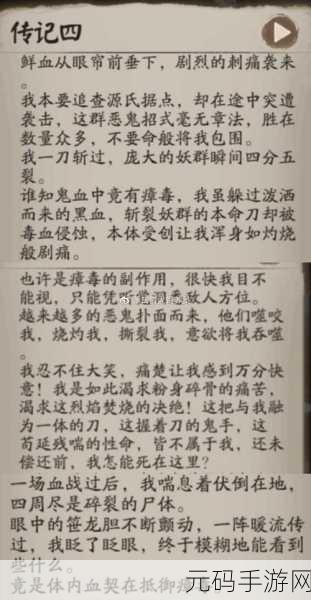 传记四
鲜血从眼帘前垂下，剧烈的刺痛袭来
。
我本要追查源氏据点，却在途中突遭
袭击，这群恶鬼招式毫无章法，胜在
数量众多，不要命般将我包围。
我一刀斩过，庞大的妖群瞬间四分五
裂。
谁知鬼血中竟有瘴毒，我虽躲过泼洒
而来的黑血，斩裂妖群的本命刀却被
毒血侵蚀，本体受创让我浑身如灼烧
般剧痛。
也许是瘴毒的副作用，很快我目不
能视，只能凭听觉
敌人方位。
越来越多的恶鬼扑面而来，他们噬咬
我，烧灼我，撕裂我，意欲将我吞噬
。
我忍不住大笑，痛楚让我感到万分快
意！我是如此渴求粉身碎骨的痛苦，
渴求这烈焰焚烧的决绝！这把与我融
为一体的刀，这握着刀的鬼手，这
苟延残喘的性命，皆不属于我，还未
偿还前，我怎能死在这里？
一场血战过后，我喘息着伏倒在地，
四周尽是碎裂的尸体。
眼中的笹龙胆不断颤动，一阵暖流传
过，我眨了眨眼，终于模糊地能看到
些什么。
竟是体内血契在抵御
元码手游网